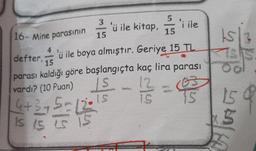 16- Mine parasının 3/15 'ü ile kitap, 5/15 'i ile
defter, 4/15 'ü ile boya almıştır. Geriye 15 TL
parası kaldığı göre başlangıçta kaç lira parası
vardı? (10 Puan)
15/15 - 12/15 = 03/15
4/15 + 3/15 + 5/15 = 12/15
15 3
15
00
15
x 5